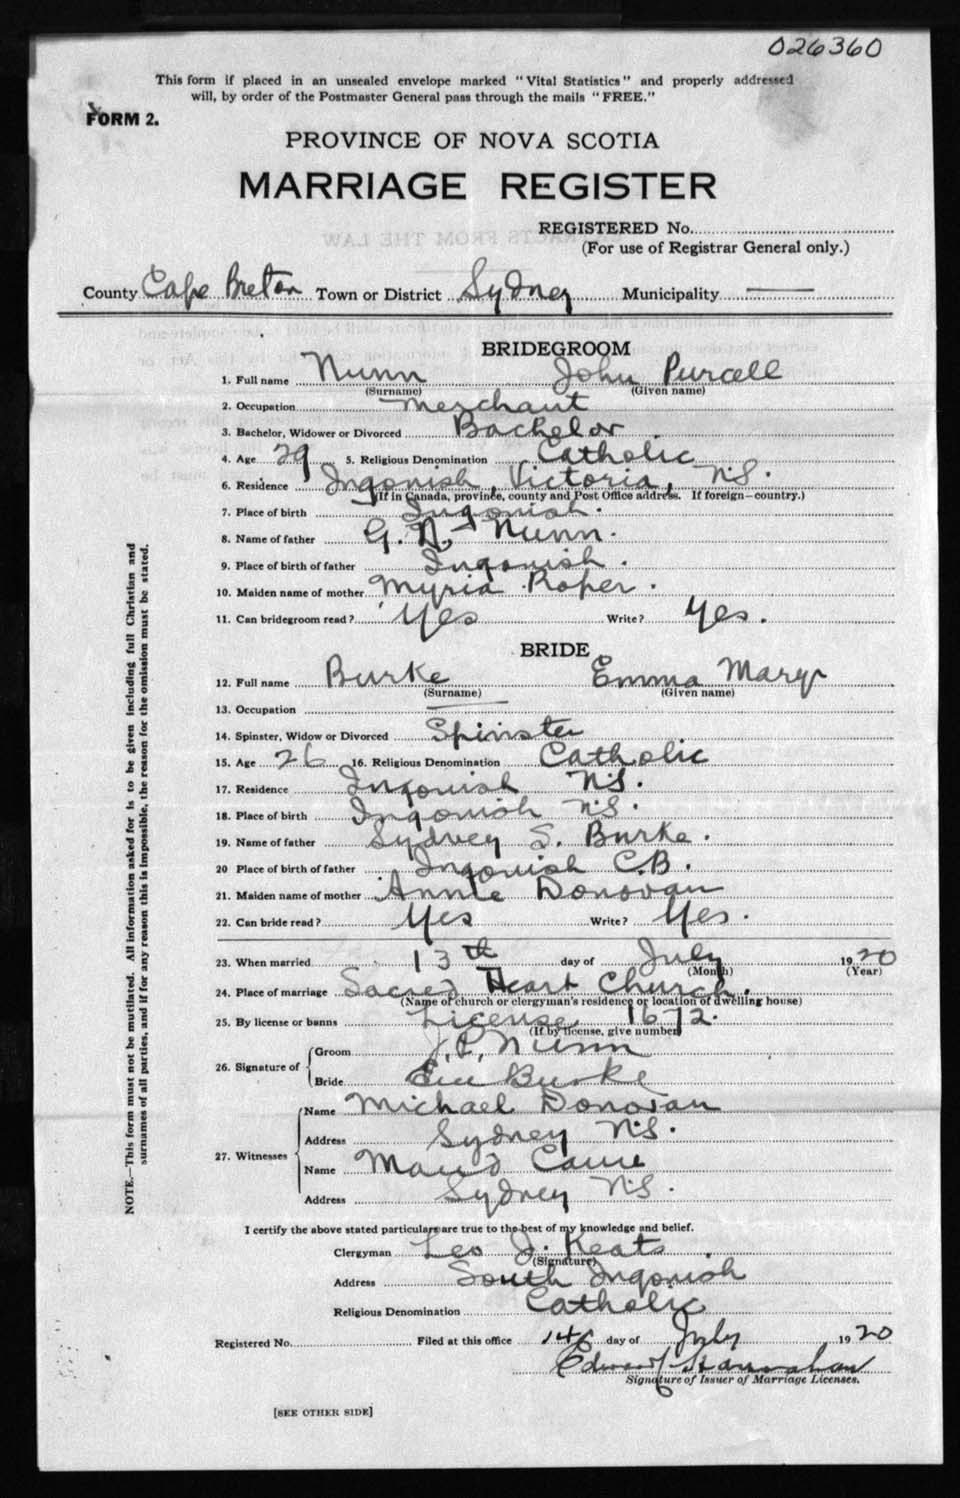 026360
This form if placed in an unsealed envelope marked "Vital Statistics" and properly addressed
will, by order of the Postmaster General pass through the mails "FREE."
FORM 2.
PROVINCE OF NOVA SCOTIA
MARRIAGE REGISTER
REGISTERED No.
(For use of Registrar General only.)
County Cape Breton Town or District Sydney Municipality —
BRIDEGROOM
1. Full name Nunn John Purcell
(Surname) (Given name)
2. Occupation merchant
3. Bachelor, Widower or Divorced Bachelor
4. Age 29 5. Religious Denomination Catholic
6. Residence Ingonish, Victoria, N.S.
(If in Canada, province, county and Post Office address. If foreign—country.)
7. Place of birth Ingonish.
8. Name of father G. N. Nunn.
9. Place of birth of father Ingonish.
10. Maiden name of mother Myria Roper.
11. Can bridegroom read? Yes Write? Yes.
BRIDE
12. Full name Burke Emma Mary
(Surname) (Given name)
13. Occupation —
14. Spinster, Widow or Divorced Spinster
15. Age 26 16. Religious Denomination Catholic
17. Residence Ingonish N.S.
18. Place of birth Ingonish N.S.
19. Name of father Sydney S. Burke.
20 Place of birth of father Ingonish C.B.
21. Maiden name of mother Annie Donovan
22. Can bride read? Yes Write? Yes.
23. When married 13th day of July 1920
(Month) (Year)
24. Place of marriage Sacred Heart Church.
(Name of church or clergyman's residence or location of dwelling house)
25. By license or banns License 1672.
(If by license, give number)
26. Signature of Groom J. P. Nunn
Bride Em Burke
27. Witnesses Name Michael Donovan
Address Sydney N.S.
Name Maud
Address Sydney N.S.
I certify the above stated particulars are true to the best of my knowledge and belief.
Clergyman Leo J. Keats
(Signature)
Address South Ingonish
Religious Denomination Catholic
Registered No. Filed at this office 14 day of July 1920
Edward Hanrahan
Signature of Issuer of Marriage Licenses.
[SEE OTHER SIDE]
NOTE.—This form must not be mutilated. All information asked for is to be given including full Christian and
surnames of all parties, and if for any reason this is impossible, the reason for the omission must be stated.